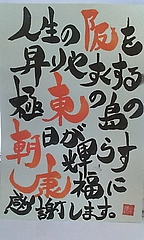 人生の阪を
昇りや するの
極東の島の
日が輝らす
朝康福に
感謝します。